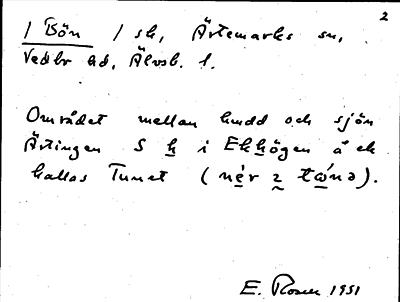 2
1 Bön / sk, Ärtemarks sn,
Vedbo hd, Älvsb. l.
Området mellan hudd och sjön
Ärtingen S h i Ekhögen å ek
kallas Tunet
E. Rosen 1951